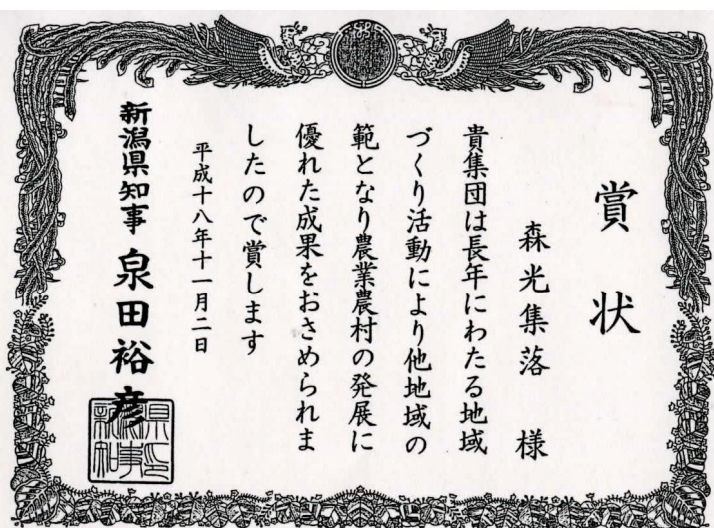 賞状
森光集落 様
貴集団は長年にわたる地域
づくり活動により他地域の
範となり農業農村の発展に
優れた成果をおさめられま
したので賞します
平成十八年十一月二日
新潟県知事 泉田裕彦